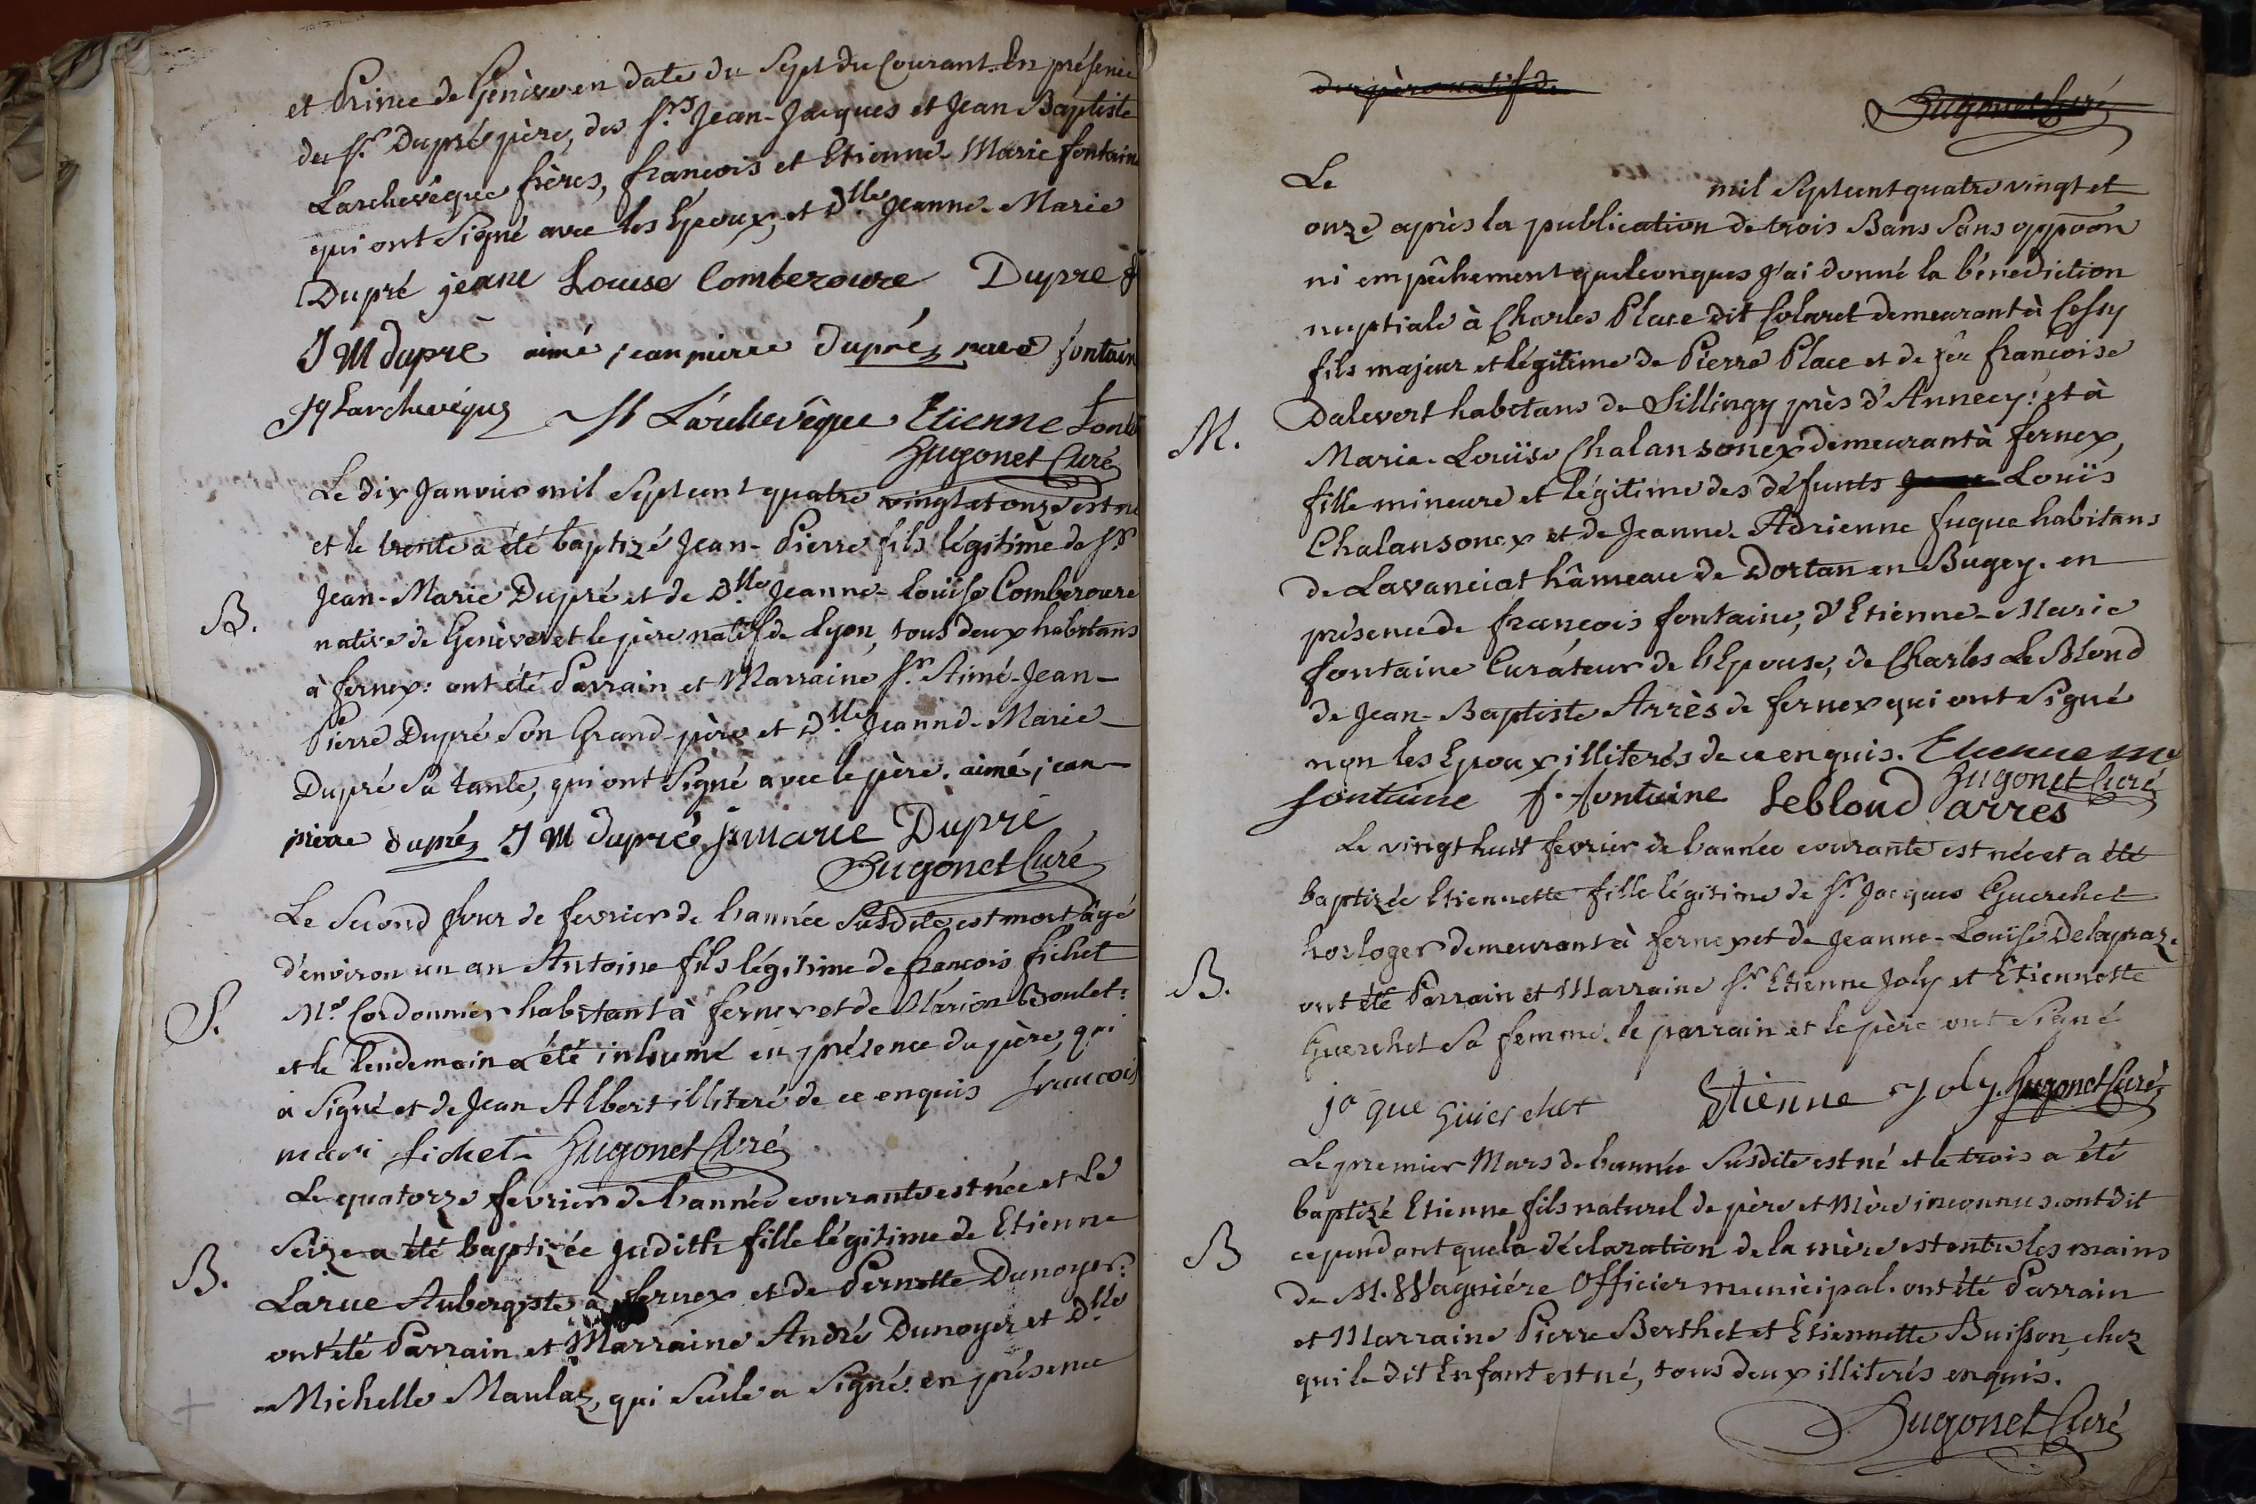 et Prince de Genève en date du Sept du Courant. En présence
du Sr. Dupré père, des Srs Jean-Jacques et Jean Baptiste
Larchevêque frères, françois et Etienne-Marie fontain
qui ont Signé avec les Epoux, et Dlle Jeanne-Marie
Dupré jeane Louise Comberoure Dupre
J M dupré aimé jean pierre dupré fontain
JJ Larchevêque Larchevêque Etienne
Hugonet Curé
Le dix Janvier mil Sept cent quatre vingt et onze est né
et le trente a été baptizé Jean-Pierre fils légitime de Sr
Jean-Marie Dupré et de Dlle Jeanne-Louïse Comberoure
B.
native de Genève et le père natif de Lyon, tous deux habitans
à fernex: ont été Parrain et Marraine Sr. Aimé-Jean-
Pierre Dupré Son Grand-père et Dlle Jeanne-Marie
Dupré Sa tante, qui ont Signé avec le père. aimé jean
pierre dupré J M dupré jne marie Dupré
Hugonet Curé
Le Second Jour de fevrier de l'année Susdite est mort âgé
d'environ un an Antoine fils légitime de françois fichet
S.
Me Cordonnier habitant à fernex et de Marion Boulet:
et le lendemain a été inhumé en présence du père, qui
a Signé et de Jean Albert illiteré de ce enquis francois
mari fichet Hugonet Curé
Le quatorze fevrier de l'année courante est née et Le
Seize a été baptizée Judith fille légitime de Etienne
B.
Larue Aubergiste à fernex et de Pernette Dunoyer:
ont été Parrain et Marraine André Dunoyer et Dlle
Michelle Maulaz, qui Seule a Signé. en présence
du père natif de
Hugonet Curé
Le mil Sept cent quatre vingt et
onze après la publication de trois Bans Sans oppoon
ni empêchement quelconques J'ai donné la bénédiction
nuptiale à Charles Place dit Colaret demeurant à Cessy
fils majeur et légitime de Pierre Place et de feu françoise
Dalevert habitans de Sillingy près d'Annecy: et à
M.
Marie-Louïse Chalansonex demeurant à fernex,
fille mineure et légitime des défunts Louïs
Chalansonex et de Jeanne-Adrienne fuque habitans
de Lavanciat hâmeau de Dortan en Bugey. en
présence de françois fontaine, d'Etienne-Marie
fontaine Curateur de l'Epouse, de Charles Le Blond
de Jean-Baptiste Arrès de fernex qui ont Signé
non les Epoux illiterés de ce enquis. Etienne me
fontaine f. fontaine Leblond arres Hugonet Curé
Le vingt huit fevrier de l'année courante est née et a été
baptizée Etiennette fille légitime de Sr. Jacques Guerchet
horloger demeurant à fernex et de Jeanne-Louise Delapraz.
B.
ont été Parrain et Marraine Sr. Etienne Joly et Etiennette
Guerchet Sa femme. le parrain et le père ont Signé
ja que Guier chet Etienne Joly. Hugonet Curé
Le premier Mars de l'année Susdite est né et le trois a été
baptizé Etienne fils naturel de père et Mère inconnus. ont dit
B
cependant que la déclaration de la mère est entre les mains
de M. Wagnière Officier municipal. ont été Parrain
et Marraine Pierre Berthet et Etiennette Buisson, chez
qui le dit Enfant est né, tous deux illiterés enquis.
Hugonet Curé